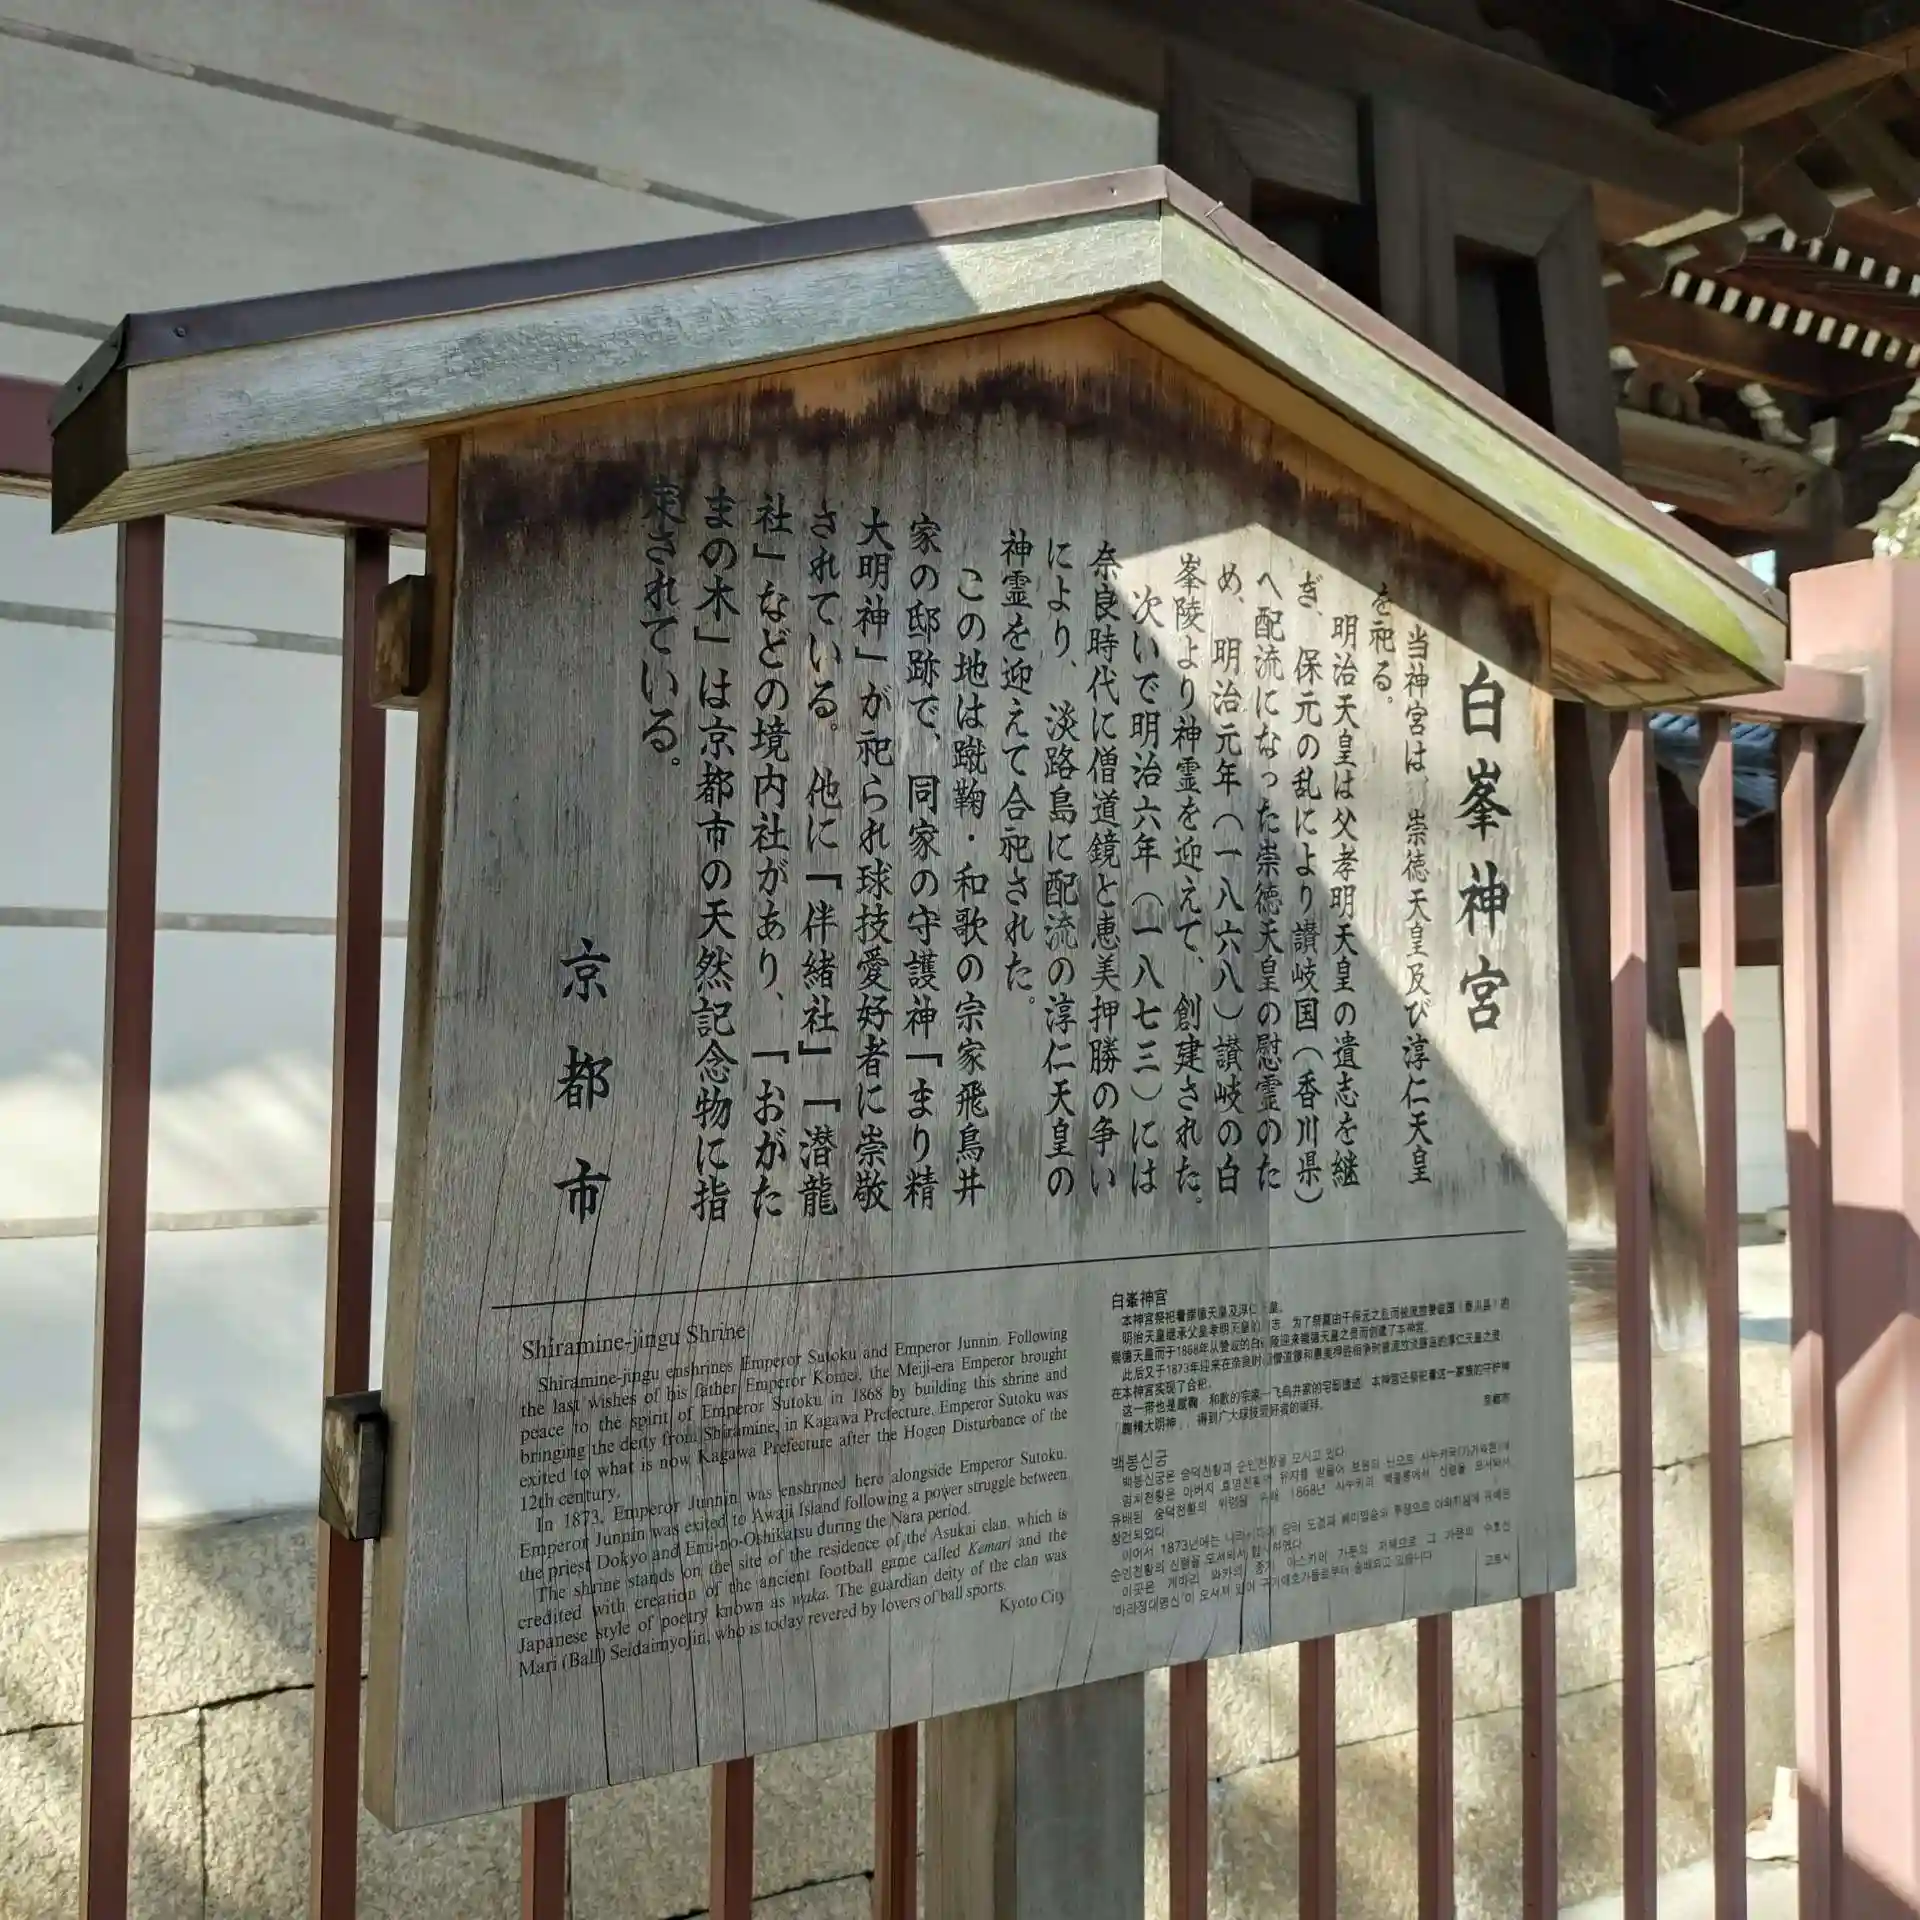 白峯神宮
当神宮は、崇徳天皇及び淳仁天皇
を祀る。
明治天皇は父孝明天皇の遺志を継
ぎ、保元の乱により讃岐国(香川県)
へ配流になった崇徳天皇の慰霊のた
め、明治元年(一八六八)讃岐の白
峯陵より神霊を迎えて、創建された。
次いで明治六年(一八七三)には
奈良時代に僧道鏡と恵美押勝の争い
により、淡路島に配流の淳仁天皇の
神霊を迎えて合祀された。
この地は蹴鞠・和歌の宗家飛鳥井
家の邸跡で、同家の守護神「まり精
大明神」が祀られ球技愛好者に崇敬
されている。他に「伴緒社」「潜龍
社」などの境内社があり、「おがた
まの木」は京都市の天然記念物に指
定されている。
京都市
Shiramine-jingu Shrine
Shiramine-jingu enshrines Emperor Sutoku and Emperor Junnin. Following
the last wishes of his father Emperor Komei, the Meiji-era Emperor brought
peace to the spirit of Emperor Sutoku in 1868 by building this shrine and
bringing the deity from Shiramine, in Kagawa Prefecture. Emperor Sutoku was
exited to what is now Kagawa Prefecture after the Hogen Disturbance of the
12th century.
In 1873, Emperor Junnin was enshrined here alongside Emperor Sutoku.
Emperor Junnin was exited to Awaji Island following a power struggle between
the priest Dokyo and Emi-no-Oshikatsu during the Nara period.
The shrine stands on the site of the residence of the Asukai clan, which is
credited with creation of the ancient football game called Kemari and the
Japanese style of poetry known as waka. The guardian deity of the clan was
Mari (Ball) Seidaimyojin, who is today revered by lovers of ball sports.
Kyoto City
白峯神宫
本神宫祭祀着崇德天皇及淳仁 皇。
明治天皇继承父皇孝明天皇 志，为了祭慰由于保元之乱而被流放赞岐国（香川县）的
崇德天皇而于1868年从赞岐的白 陵迎来崇德天皇之灵而创建了本神宫。
此后又于1873年迎来在奈良时 僧道镜和惠美押胜相争时被流放淡路岛的淳仁天皇之灵
在本神宫实现了合祀。
这一带也是蹴鞠、和歌的宗家—飞鸟井家的宅邸遗迹，本神宫还祭祀着这一家族的守护神
「鞠精大明神」，得到广大球技爱好者的崇拜。
京都市
백봉신궁
백봉신궁은 숭덕천황과 순인천황을 모시고 있다.
숭덕천황의 위령을 위해 1868년
창건되었다.
이어서 1873년에는
순인천황의 신령을 모셔와서 합사하였다.
교토시